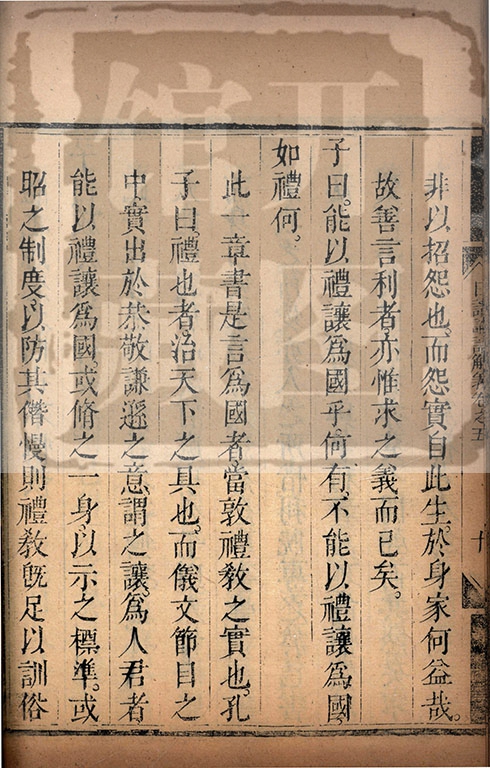 非以招怨也。而怨實自此生。於身家何益哉。
故善言利者。亦惟求之義而已矣。
子曰。能以禮讓爲國乎。何有。不能以禮讓爲國。
如禮何。
此一章書是言爲國者。當敦禮教之實也。孔
子曰。禮也者。治天下之具也。而儀文節目之
中。實出於恭敬謙遜之意。謂之讓。爲人君者
能以禮讓爲國。或脩之一身以示之標準。或
昭之制度。以防其僭慢。則禮教旣足以訓俗
日講四書解義卷之五